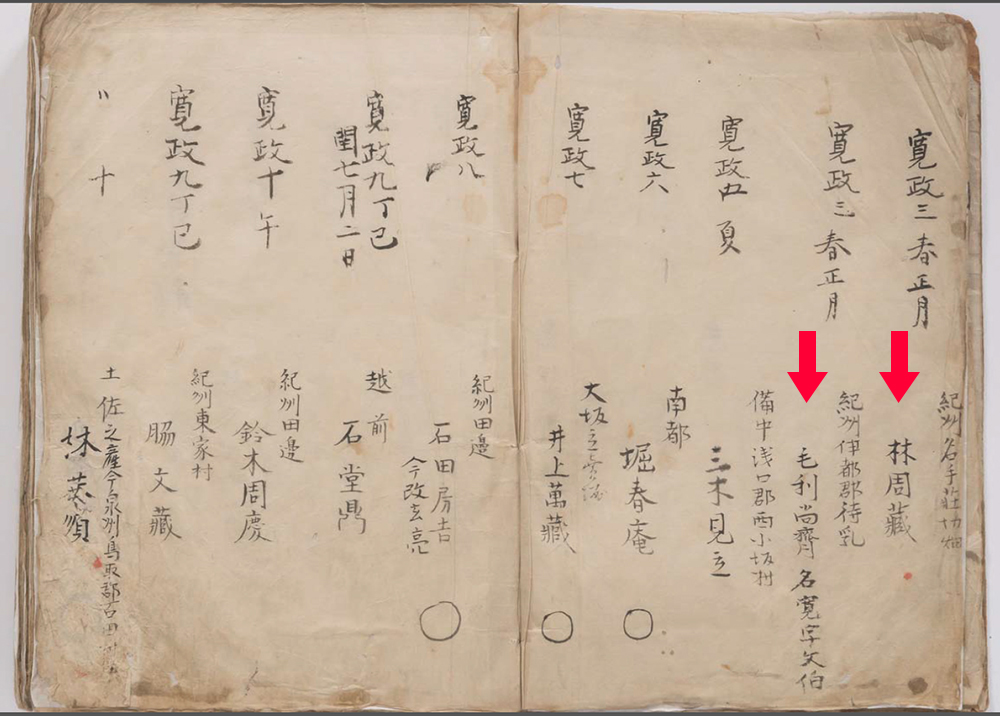 寛政三 春正月
紀州名手荘切畑
林周藏
寛政三 春正月
紀州伊都郡待乳
毛利尚齊 名寛字文伯
寛政五 夏
備中浅口郡西小坂村
三木見立
寛政六
南都
堀春庵
寛政七
大坂之
井上萬藏
寛政八
紀州田邉
石田房吉
今改玄亮
寛政九丁巳
閏七月二日
越前
石堂鼎
寛政十 午
紀州田邉
鈴木周慶
寛政九丁巳
紀州東家村
脇文藏
〃 十
土佐之産今泉州鳥取郡
林